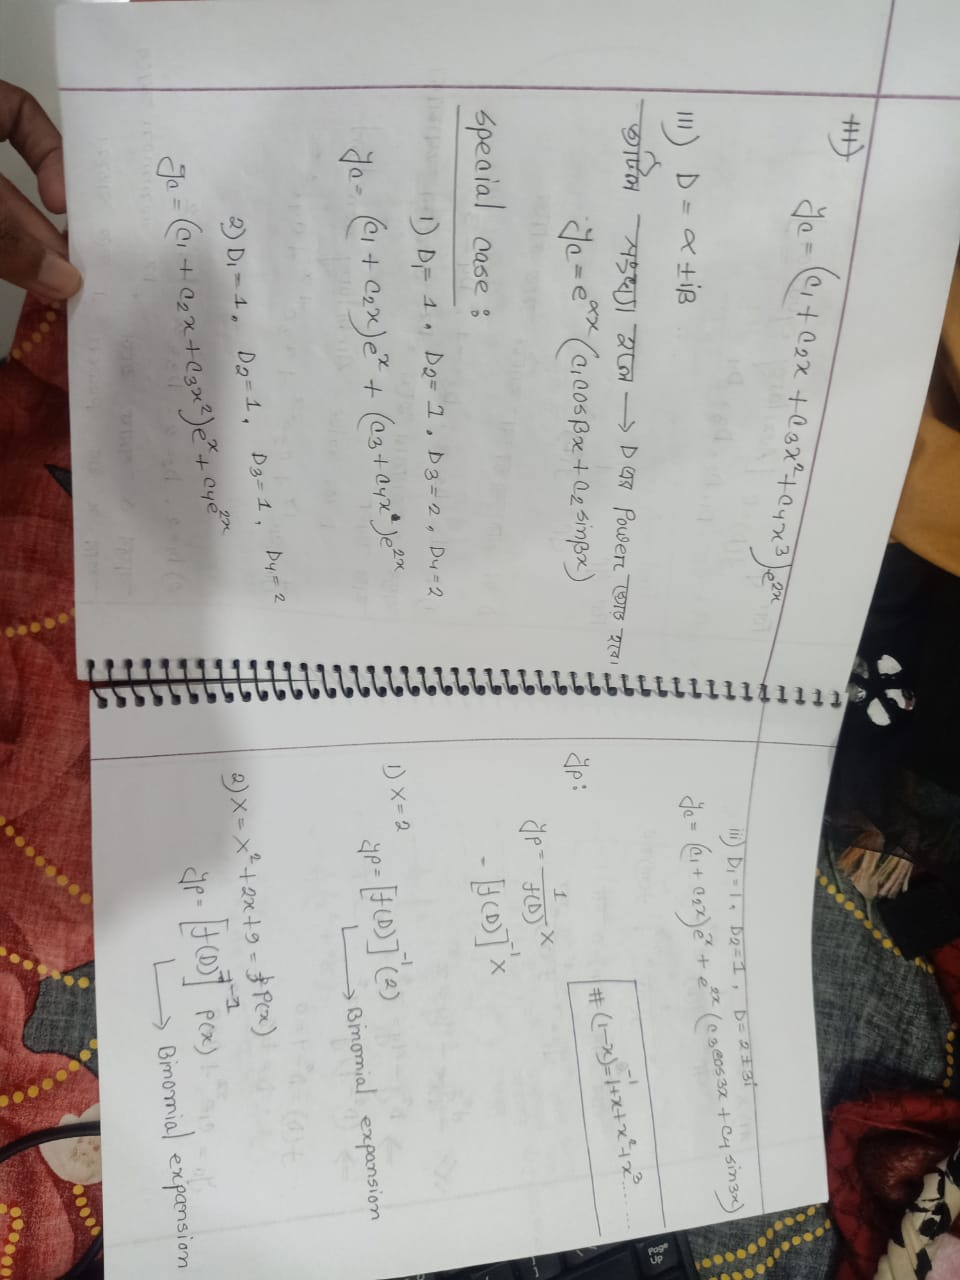 y_c = (c₁ + c₂x + c₃x² + c₄x³) e^{2x}
III) D = α ± iβ
জটিল সংখ্যা হলে → D এর Power জোড় হবে।
y_c = e^{αx} (c₁cosβx + c₂ sinβx)
special case:
1) D₁ = 1, D₂ = 1, D₃ = 2, D₄ = 2
y_c = (c₁ + c₂x) e^x + (c₃ + c₄x) e^{2x}
2) D₁ = 1, D₂ = 1, D₃ = 1, D₄ = 2
y_c = (c₁ + c₂x + c₃x²) e^x + c₄e^{2x}
iii) D₁ = 1, D₂ = 1, D = 2 ± 3i
y_c = (c₁ + c₂x) e^x + e^{2x} (c₃cos3x + c₄ sin3x)
# (1-x)^{-1} = 1+x+x²+x³.......
y_p:
y_p = 1/f(D) X
= [f(D)]^{-1} X
1) X = 2
y_p = [f(D)]^{-1} (2)
→ Binomial expansion
2) X = x² + 2x + 9 = P(x)
y_p = [f(D)]^{-1} P(x)
→ Binomial expansion